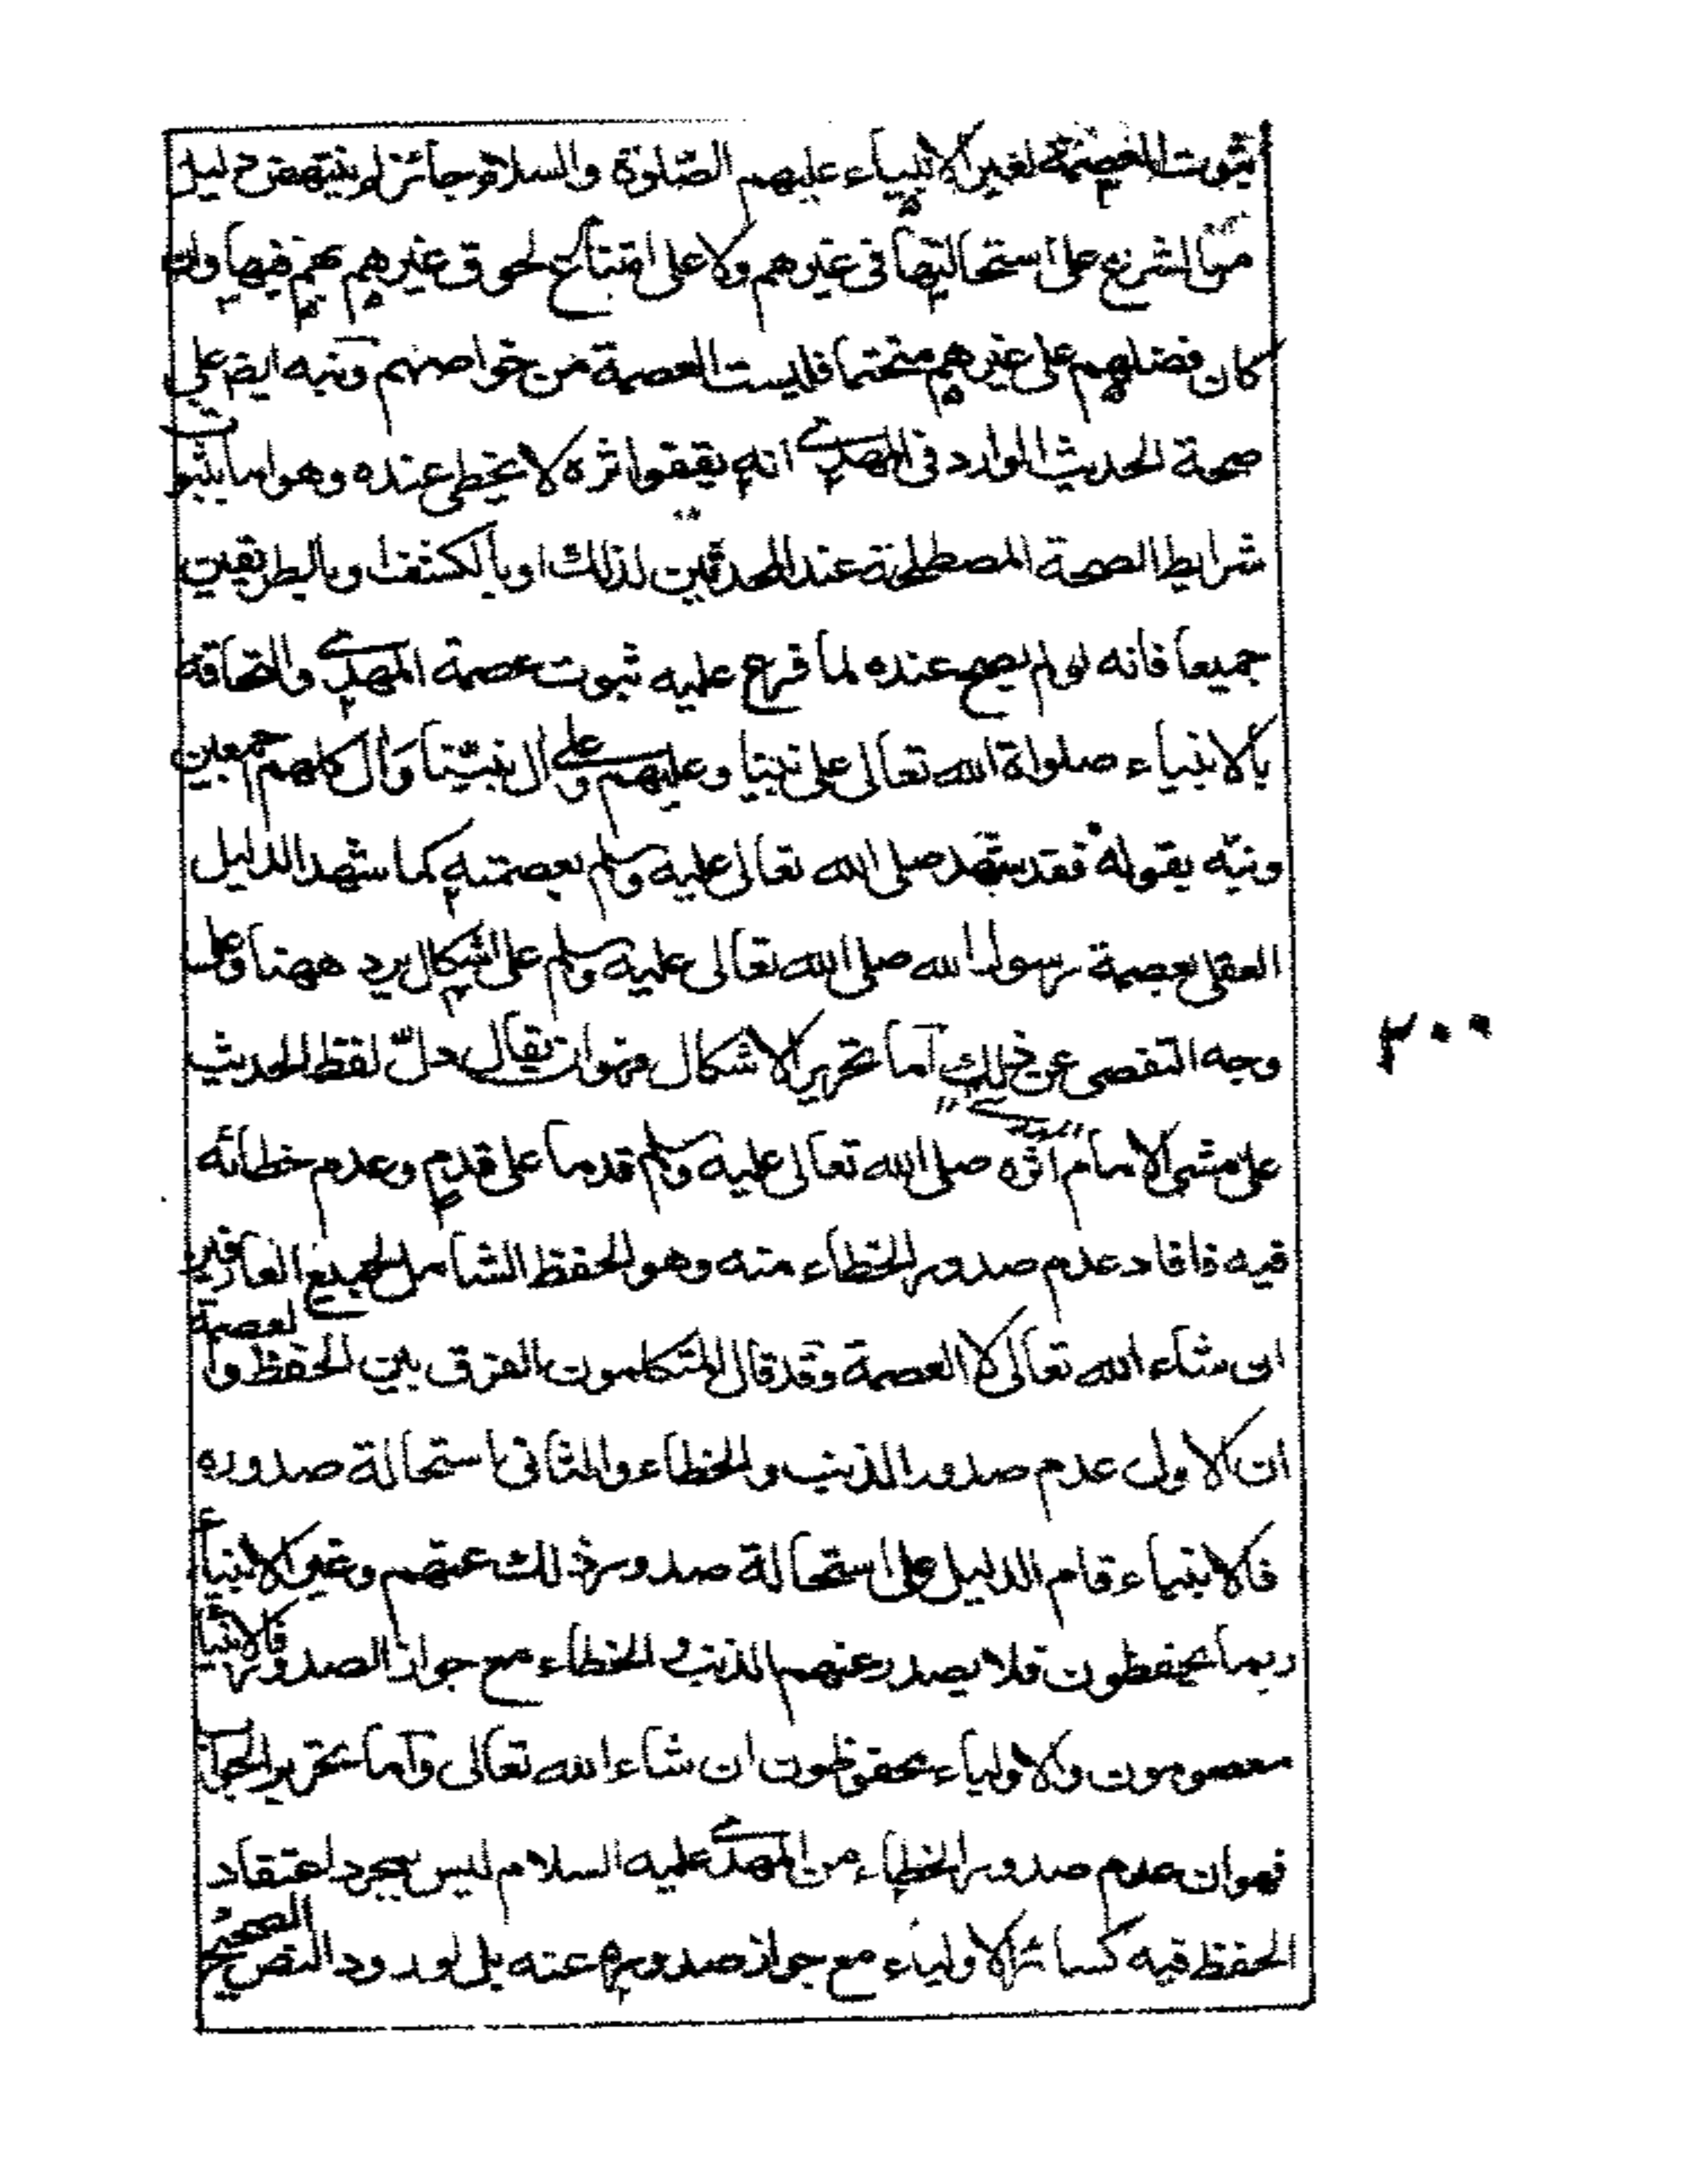 ثبوت العصمة لغير الانبياء عليهم الصّلوة والسلام جائز لم ينتهض دليل
من الشرع على استحالتها فى غيرهم ولا على امتناع لحوق غيرهم بهم فيها وان
كان فضلهم على غيرهم متحتما فليست العصمة من خواصهم ونبه ايضا على
صحة الحديث الوارد فى المهدى انه يقفوا اثره لا يخطى عنده وهو اما بثبوت
شرايط الصحة المصطلحة عند المحدثين لذلك او بالكشف او بالطريقين
جميعا فانه لو لم يصح عنده لما فرع عليه ثبوت عصمة المهدى والتحاقه
بالانبياء صلواة الله تعالى على نبينا وعليهم وعلى ال نبيّنا وال كلهم اجمعين
ونبّه بقوله فقد شهد صلى الله تعالى عليه وسلم بعصمته كما شهد الدليل
العقلى بعصمة رسول الله صلى الله تعالى عليه وسلم على اشكال يرد ههنا وعلى
وجه التفصى عن ذلك اما تحرير الاشكال فهو ان يقال دلّ لفظ الحديث
٣٠٠
على مشى الامام اثره صلى الله تعالى عليه وسلم قدما على قدم وعدم خطائه
فيه فافاد عدم صدور الخطاء منه وهو الحفظ الشامل لجميع العارفين
ان شاء الله تعالى لا العصمة وقد قال المتكلمون الفرق بين الحفظ والعصمة
ان الاول عدم صدور الذنب والخطاء والثانى استحالة صدوره
فالانبياء قام الدليل على استحالة صدور ذلك عنهم وغير الانبياء
ربما يحفظون فلا يصدر عنهم الذنب والخطاء مع جواز الصدور فالانبياء
معصومون والاولياء محفوظون ان شاء الله تعالى واما تحرير الجواب
فهو ان عدم صدور الخطاء من المهدى عليه السلام ليس بمجرد اعتقاد
الحفظ فيه كسائر الاولياء مع جواز صدوره عنه بل لورود النص الصحيح